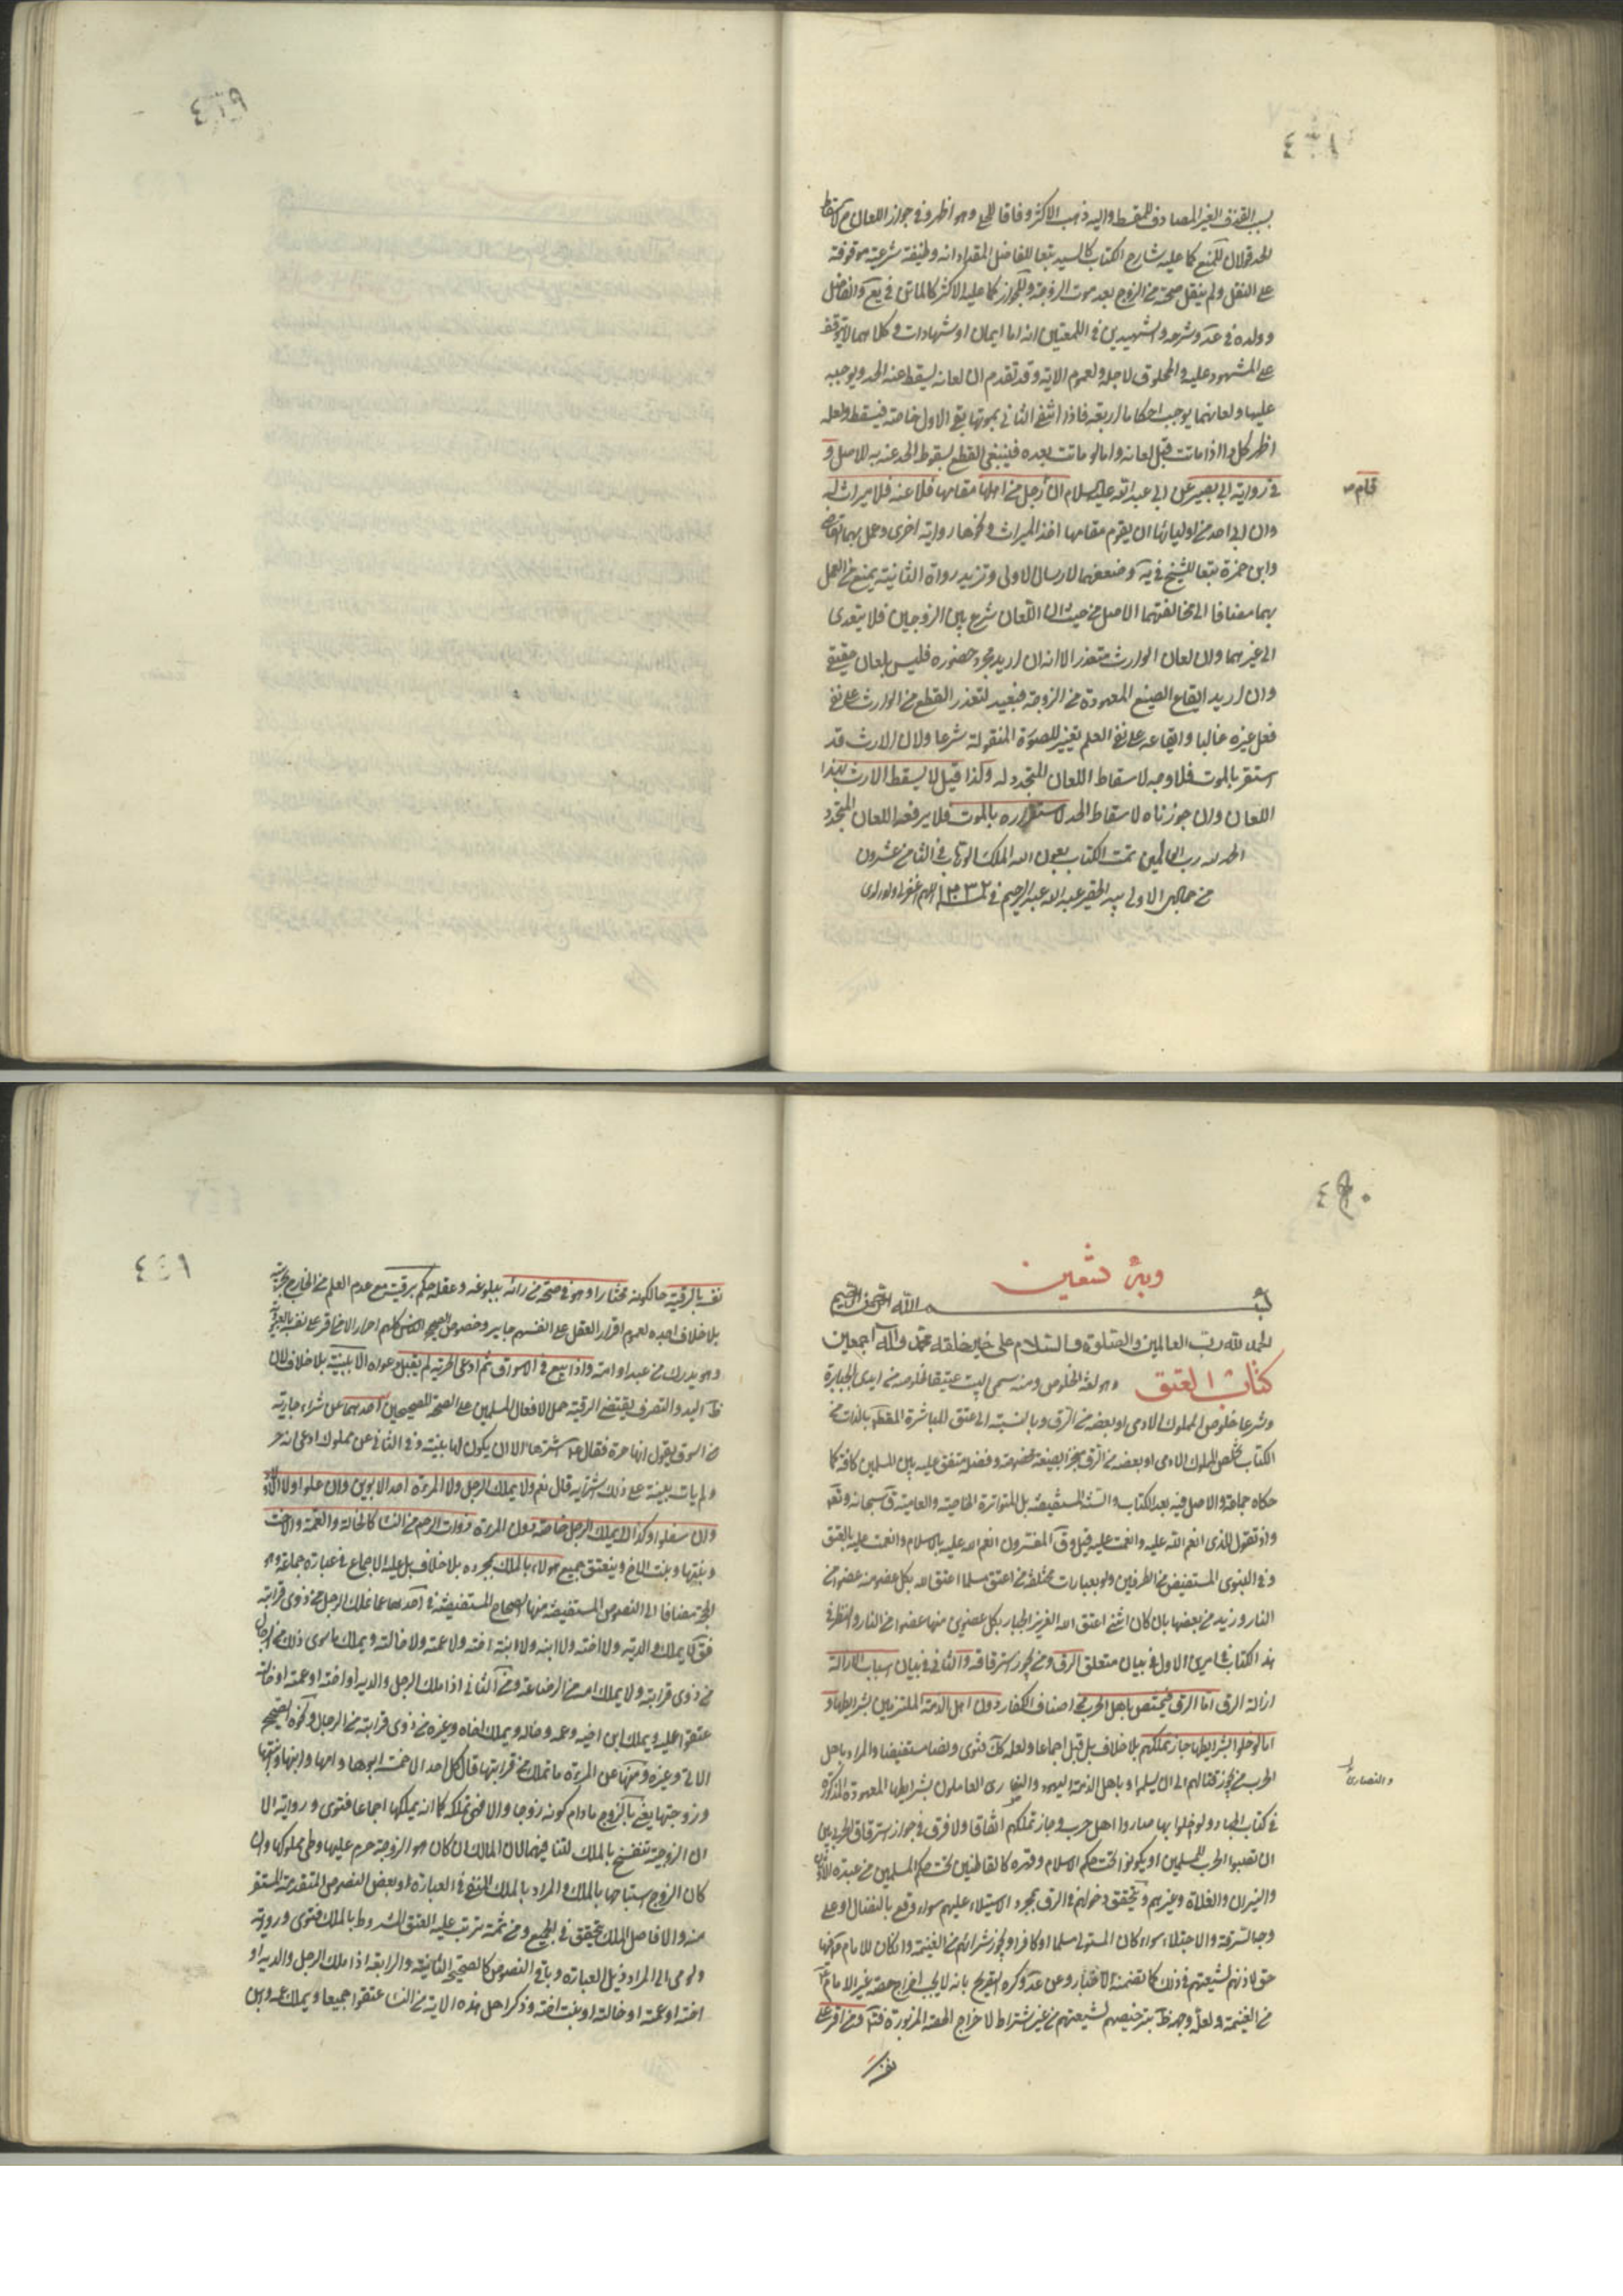 ٤٣٨
بسبب القذف الغير المصادف للمسقط واليه ذهب الاكثر وفاقا للحلي وهو اظهر وفي جواز اللعان
الحد قولان للمنع كما عليه شارح الكتاب كالسيد تبعا للفاضل المقداد انه وظيفة شرعية موقوفة
على النقل ولم ينقل صحته من الزوج بعد موت الزوجة وللجواز كما عليه الاكثر كالماتن في يع والفاضل
وولده في عد وشرحه والشهيدين في اللمعتين انه اما ايمان او شهادات وكلاهما لا يتوقف
على المشهود عليه والمحلوف لاجله ولعموم الاية وقد تقدم ان لعانه يسقط عنه الحد ويوجبه
عليها ولعانهما يوجب احكاما اربعة فاذا انتفى الثاني بموتها بقي الاول خاصة فيسقط ولعله
اظهر كل ذا اذا ماتت قبل لعانه واما لو ماتت بعده فينبغي القطع بسقوط الحد عنه به للاصل و
في رواية ابي بصير عن ابي عبد الله عليه السلام ان رجل من اهلها مقامها فلاعنه فلا ميراث له
قام صح
وان ابى احد من اوليائها ان يقوم مقامها اخذ الميراث ونحوها رواية اخرى وعمل بهما القاضي
وابن حمزة تبعا للشيخ في يه وضعفهما لارسال الاولى وتزيد رواة الثانية يمنع من العمل
بهما مضافا الى مخالفتهما الاصل من حيث ان اللعان شرع بين الزوجين فلا يتعدى
الى غيرهما وان لعان الوارث متعذر الا انه ان اريد مجرد حضوره فليس بلعان حقيقي
وان اريد ايقاع الصيغ المعهودة من الزوجة فبعيد لتعذر القطع من الوارث على نفي
فعل غيره غالبا وايقاعه على نفي العلم تغيير للصورة المنقولة شرعا ولان الارث قد
استقر بالموت فلا وجه لاسقاط اللعان المتجدد له وكذا قيل لا يسقط الارث بهذا
اللعان وان جوزناه لاسقاط الحد لاستقراره بالموت فلا يرفعه اللعان المتجدد
الحمد لله رب العالمين تمت الكتاب بعون الله الملك الوهاب في الثامن عشرون
من جمادى الاولى بيد الحقير عبد الله عبد الرحيم في ١٢٣٢ اللهم اغفر له ولوالدي
٤٣٩
٤٤٠
وبه نستعين
بسم الله الرحمن الرحيم
الحمد لله رب العالمين والصلوة والسلام على خير خلقه محمد وآله اجمعين
كتاب العتق وهو لغة الخلوص ومنه سمي البيت عتيقا لخلوصه من ايدي الجبابرة
وشرعا خلوص المملوك الادمي او بعضه من الرق وبالنسبة الى عتق المباشرة المقصود بالذات من
الكتاب تخلص المملوك الادمي او بعضه من الرق منجزا بصيغة مخصوصة وفضله متفق عليه بين المسلمين كافة كما
حكاه جماعة والاصل فيه بعد الكتاب والسنة المستفيضة بل المتواترة الخاصية والعامية ق سبحانه وتع
واذ تقول للذي انعم الله عليه وانعمت عليه قيل وق المفسرون انعم الله عليه بالاسلام وانعمت عليه بالعتق
وفي النبوي المستفيض من الطرفين ولو بعبارات مختلفة من اعتق مسلما اعتق الله بكل عضو منه عضوا من
النار وزيد من بعضها بان كان انثى اعتق الله العزيز الجبار بكل عضوين منها عضوا من النار والنظر في
هذ الكتاب في امرين الاول في بيان متعلق الرق ومن يجوز استرقاقه والثاني في بيان اسباب الازالة
ازالة الرق اما الرق فيختص باهل الحرب من اصناف الكفار دون اهل الذمة الملتزمين بشرايطها و
اما لو اخلوا بشرايطها جاز تملكهم بلا خلاف بل قيل اجماعا ولعله كك فتوى ونصا مستفيضا والمراد باهل
الحرب من يجوز قتالهم الى ان يسلموا وباهل الذمة اليهود والنصارى العاملون بشرايطها المعهودة المذكورة
والنصارى
في كتاب الجهاد ولو اخلوا بها صاروا اهل حرب وجاز تملكهم اتفاقا ولا فرق في جواز استرقاق الحربي بين
ان نصبوا الحرب للمسلمين او يكونوا تحت حكم الاسلام وقهره كالقاطنين تحت حكم المسلمين من عبدة الاوثان
والنيران والغلاة وغيرهم ويتحقق دخولهم في الرق بمجرد الاستيلاء عليهم سواء وقع بالقتال او على
وجه السرقة والاختلاس سواء كان المتولي مسلما او كافرا ويجوز شرائهم من الغنيمة وان كان للامام فيها
حق لاذنهم لشيعتهم في ذلك كما تضمنه الاخبار وعن عد وكره التصريح بانه لا يجب اخراج حصة غير الامام
من الغنيمة ولعل وجهه ظ ترخيصهم لشيعتهم من غير اشتراط لاخراج الحصة المزبورة فت ومن اقر على
نفسه
٤٤١
نفسه بالرقية حالكونه مختارا وهو في صحة من رائه ببلوغه وعقله حكم برقيته مع عدم العلم من الخارج بحريته
بلا خلاف اجده لعموم اقرار العقلاء على انفسهم جايز وخصوص الصحيح الناس كلهم احرار الا من اقر على نفسه بالعبودية
وهو مدرك من عبد او امة واذا بيع في الاسواق ثم ادعى الحرية لم يقبل دعواه الا ببينة بلا خلاف لان
ظ اليد والتصرف يقتضي الرقية حملا لافعال المسلمين على الصحة للصحيحين احدهما عن شراء جارية
من السوق يقول انها حرة فقال اشترها الا ان يكون لها بينة وفي الثاني عن مملوك ادعى انه حر
ولم يات ببينة على ذلك اشتريه قال نعم ولا يملك الرجل ولا المرءة احد الابوين وان علوا ولا الاولاد
وان سفلوا وكذا لا يملك الرجل خاصة دون المرءة ذوات الرحم من النساء كالخالة والعمة والاخت
وبنتها وبنت الاخ وينعتق جميع هولاء بالملك بمجرده بلا خلاف بل عليه الاجماع في عبارة جماعة وهو
الحجة مضافا الى النصوص المستفيضة منها الصحاح المستفيضة في احدها عما يملك الرجل من ذوي قرابته
فق لا يملك والديه ولا اخته ولا ابنه ولا ابنة اخته ولا عمته ولا خالته ويملك ما سوى ذلك من الرجال
من ذوي قرابته ولا يملك امه من الرضاعة وفي الثاني اذا ملك الرجل والديه او اخته او عمته او خالته
عتقوا عليه ويملك ابن اخيه وعمه وخاله ويملك اخاه وغيره من ذوي قرابته من الرجال ونحوه الصحيح
الاتي وغيره ومنها عن المرءة ما تملك من قرابتها قال كل احد الا خمسة ابوها وامها وابنها وبنتها
وزوجها يعني بالزوج مادام كونه زوجا والا فهي تملكه كما انه يملكها اجماعا فتوى ورواية الا
ان الزوجية تنفسخ بالملك لتنافيهما لان المالك ان كان هو الزوجة حرم عليها وطي مملوكها وان
كان الزوج استباحها بالملك والمراد بالملك المنفي في العبارة وبعض النصوص المتقدمة المستقر
منه والا فاصل الملك متحقق في الجميع ومن ثمة ترتب عليه العتق المشروط بالملك فتوى ورواية
ويومي الى المراد ذيل العبارة وباقي النصوص كالصحيح الثانية والرابعة اذا ملك الرجل والديه او
اخته او عمته او خالته او بنت اخته وذكر اهل هذه الاية من النساء عتقوا جميعا ويملك عمه وابن